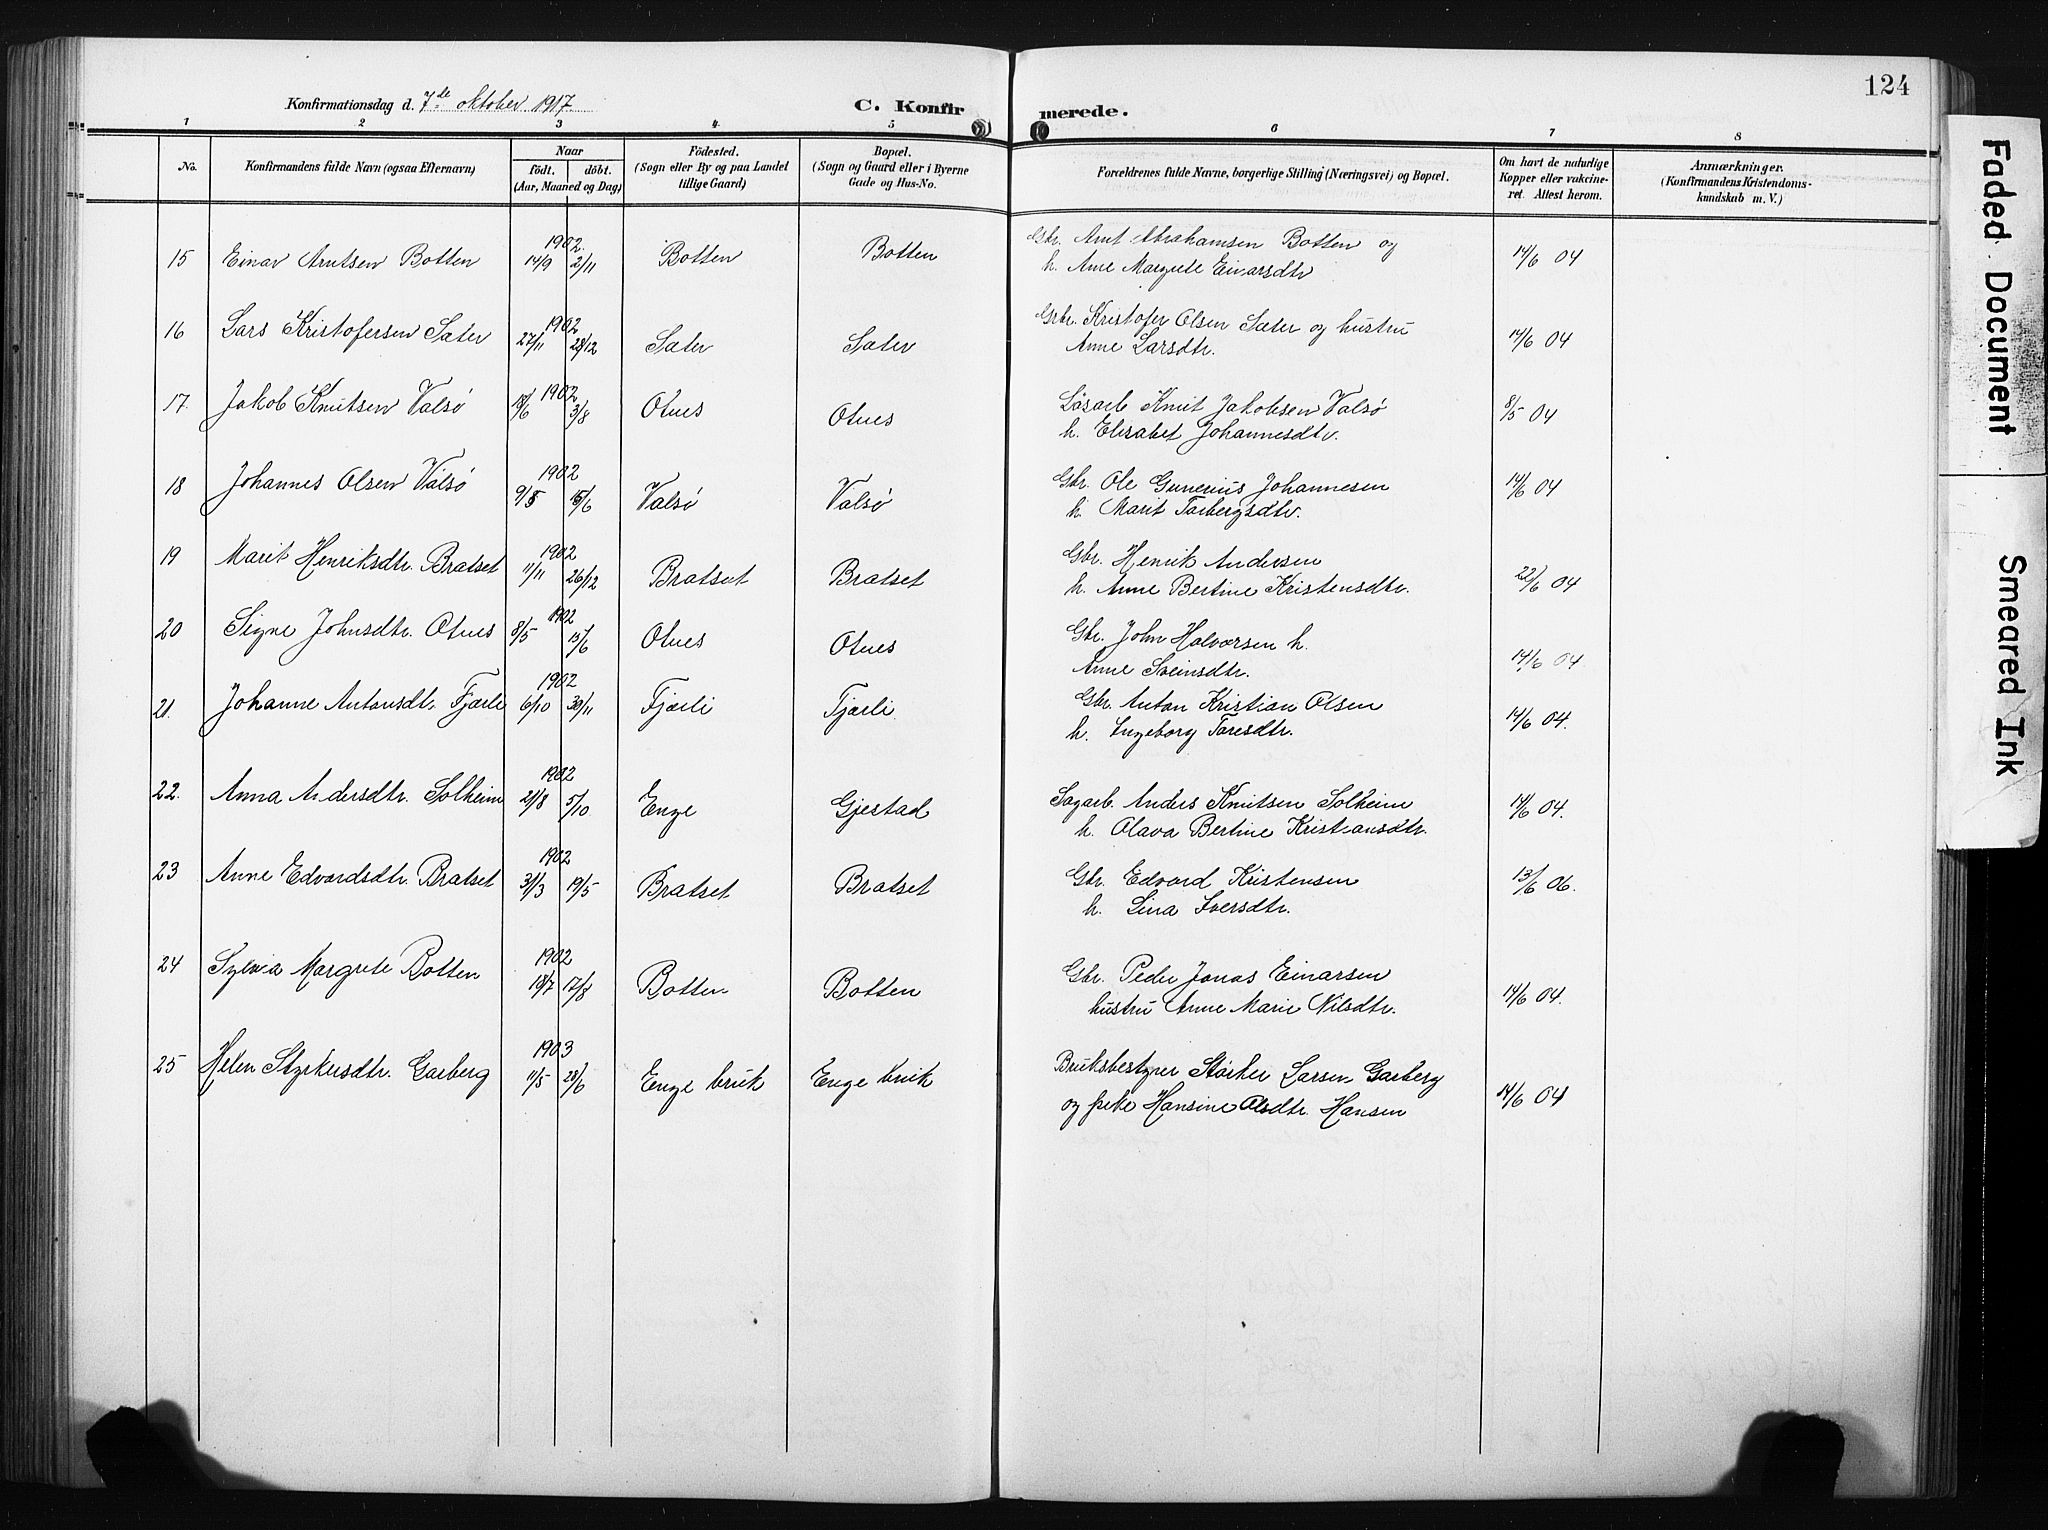 124
Konfirmationsdag d. 7de oktober 1917.
C. Konfirmerede.
1 2 3 4 5 6 7 8
No. Konfirmandens fulde Navn (ogsaa Efternavn) Naar født. døbt. (Aar, Maaned og Dag) Födested. (Sogn eller By og paa Landet tillige Gaard) Bopæl. (Sogn og Gaard eller i Byerne Gade og Hus-No. Forældrenes fulde Navne, borgerlige Stilling (Næringsvei) og Bopæl. Om havt de naturlige Kopper eller vakcineret. Attest herom. Anmærkninger. (Konfirmandens Kristendomskundskab m. V.)
15 Einar Arntsen Botten 1902 14/9 2/11 Botten Botten Gbr. Arnt Abrahamsen Botten og
h. Ane Margrete Einarsdtr 14/6 04
16 Lars Kristofersen Sæter 1902 27/11 28/12 Sæter Sæter Grbr. Kristofer Olsen Sæter og hustru
Anne Larsdtr. 14/6 04
17. Jakob Knutsen Valsø 1902 18/6 3/8 Otnes Otnes Løsarb Knut Jakobsen Valsø
h. Elisabet Johannesdtr. 8/5 04
18 Johannes Olsen Valsø 1902 9/5 15/6 Valsø Valsø Gbr. Ole Gunerius Johannesen
h. Marit Torbergsdtr. 14/6 04
19 Marit Henriksdtr. Bratset 1902 11/11 26/12 Bratset Bratset Gbr. Henrik Andersen
h. Anne Bertine Kristensdtr. 22/6 04
20 Signe Johnsdtr. Otnes 1902 8/5 15/6 Otnes Otnes Gbr. John Halvorsen h.
Anne Sveinsdtr. 14/6 04.
21. Johanne Antonsdtr. Fjærli 1902 6/10 30/11 Fjærli Fjærli Gbr. Anton Kristian Olsen
h. Ingeborg Toresdtr. 14/6 04.
22. Anna Andersdtr. Solheim 1902 21/8 5/10 Enge Gjestad Sagarb. Anders Knutsen Solheim
h. Olava Bertine Kristiansdtr. 14/6 04.
23 Anne Edvardsdtr. Bratset 1902 31/3 19/5 Bratset Bratset Gbr. Edvard Kristensen
h. Lina Iversdtr. 13/6 06.
24 Sylvia Margrete Botten 1902 18/7 17/8 Botten Botten Gbr. Peder Jonas Einarsen
hustru Anne Marie Nilsdtr. 14/6 04.
25 Helen Styrkersdtr. Garberg 1903 11/5 28/6 Enge bruk Enge bruk Bruksbestyrer Størker Larsen Garberg
og Hansine Olsdtr. Hansen 14/6 04
Faded Document
Smeared Ink